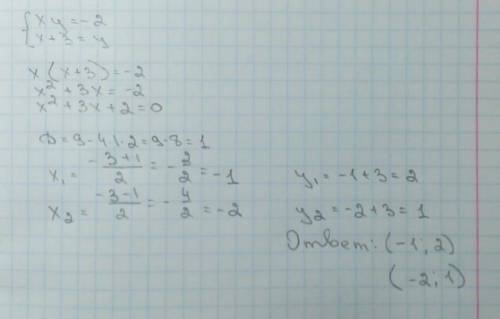 { xy = -2
{ x+3 = y
x(x+3) = -2
x² + 3x = -2
x² + 3x + 2 = 0
D = 9 - 4·1·2 = 9 - 8 = 1
x₁ = (-3+1)/2 = -2/2 = -1
x₂ = (-3-1)/2 = -4/2 = -2
y₁ = -1+3 = 2
y₂ = -2+3 = 1
Ответ: (-1; 2)
(-2; 1)